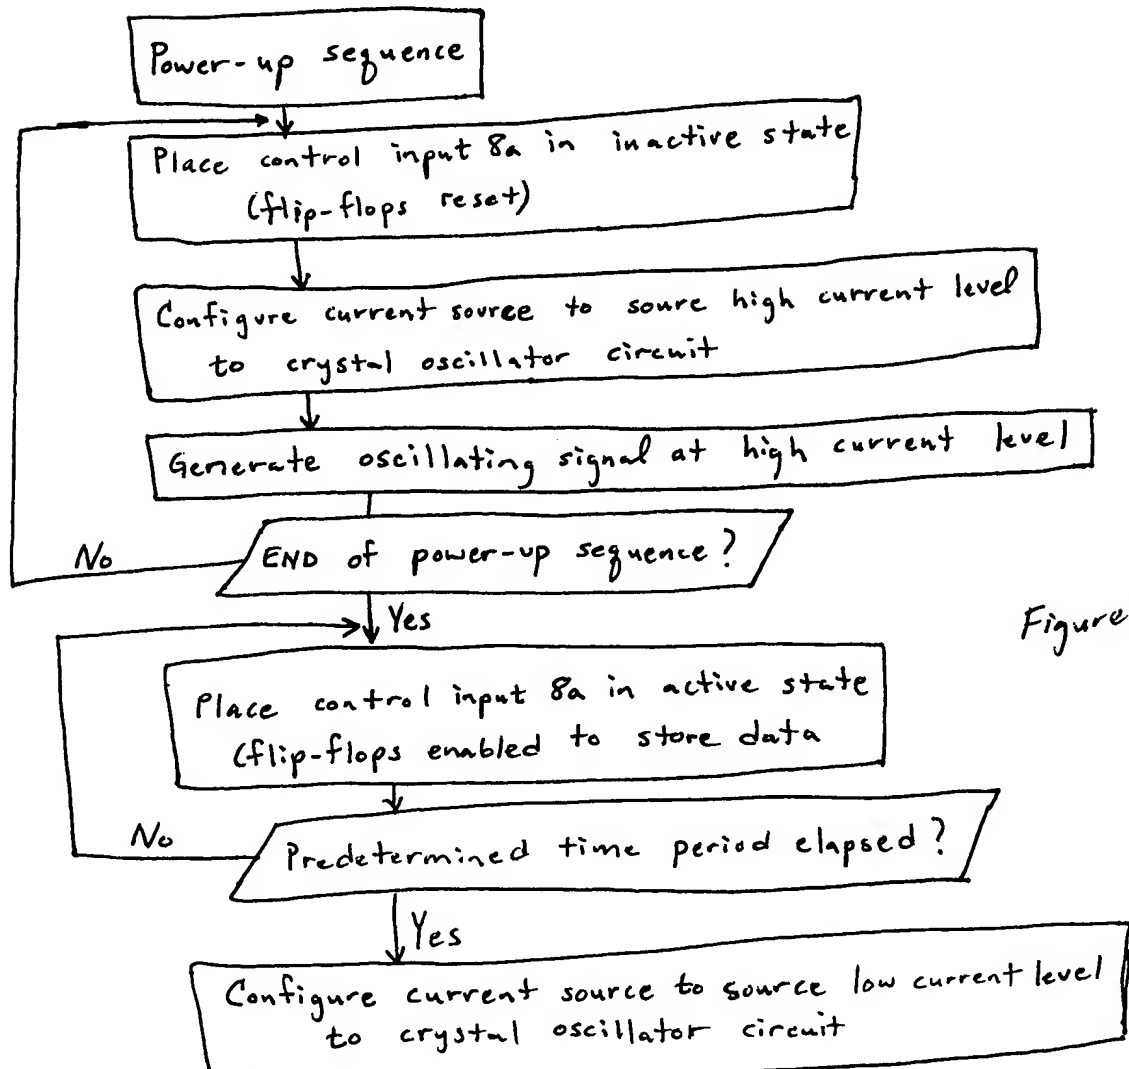 Power-up sequence
Place control input 8a in inactive state
(flip-flops reset)
Configure current source to soure high current level
to crystal oscillator circuit
Generate oscillating signal at high current level
No
END of power-up sequence?
Yes
Figure
Place control input 8a in active state
(flip-flops enabled to store data
No
Predetermined time period elapsed?
Yes
Configure current source to source low current level
to crystal oscillator circuit